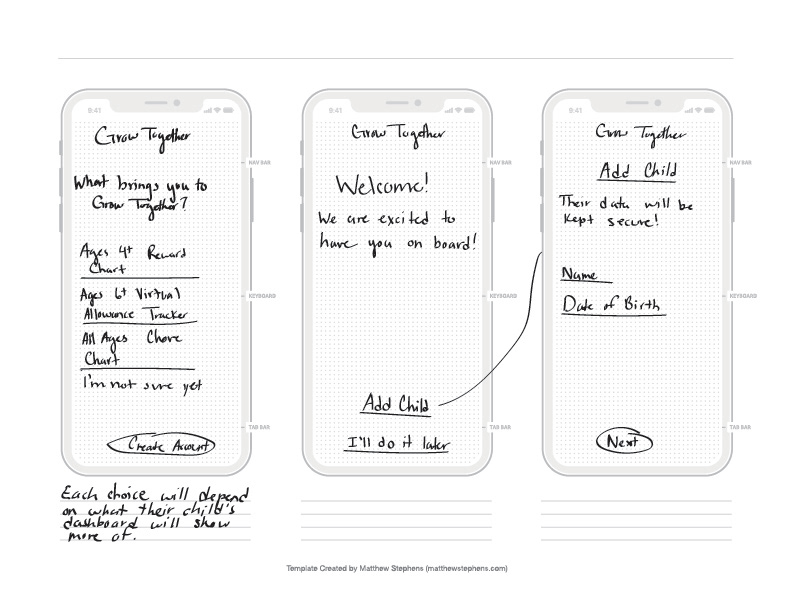 9:41
Grow Together
What brings you to
Grow Together?
Ages 4+ Reward
Chart
Ages 6+ Virtual
Allowance Tracker
All Ages Chore
Chart
I'm not sure yet
Create Account
NAV BAR
KEYBOARD
TAB BAR
Each choice will depend
on what their child's
dashboard will show
more of.
9:41
Grow Together
Welcome!
We are excited to
have you on board!
Add Child
I'll do it later
NAV BAR
KEYBOARD
TAB BAR
9:41
Grow Together
Add Child
Their data will be
kept secure!
Name
Date of Birth
Next
NAV BAR
KEYBOARD
TAB BAR
Template Created by Matthew Stephens (matthewstephens.com)